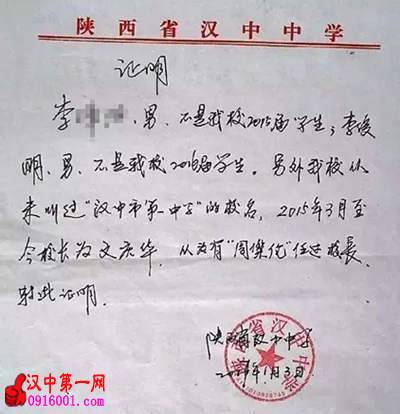 陕西省汉中中学
证明
李 ,男、不是我校2015届学生;李俊
明、男、不是我校2016届学生。另外我校从
来叫过"汉中市第一中学"的校名,2015年3月至
今校长为文庆华,从为有" "任过校长.
特此证明.
陕西省汉中中学
年1月3日
陕西省汉中中学
汉中第一网
0916001.com